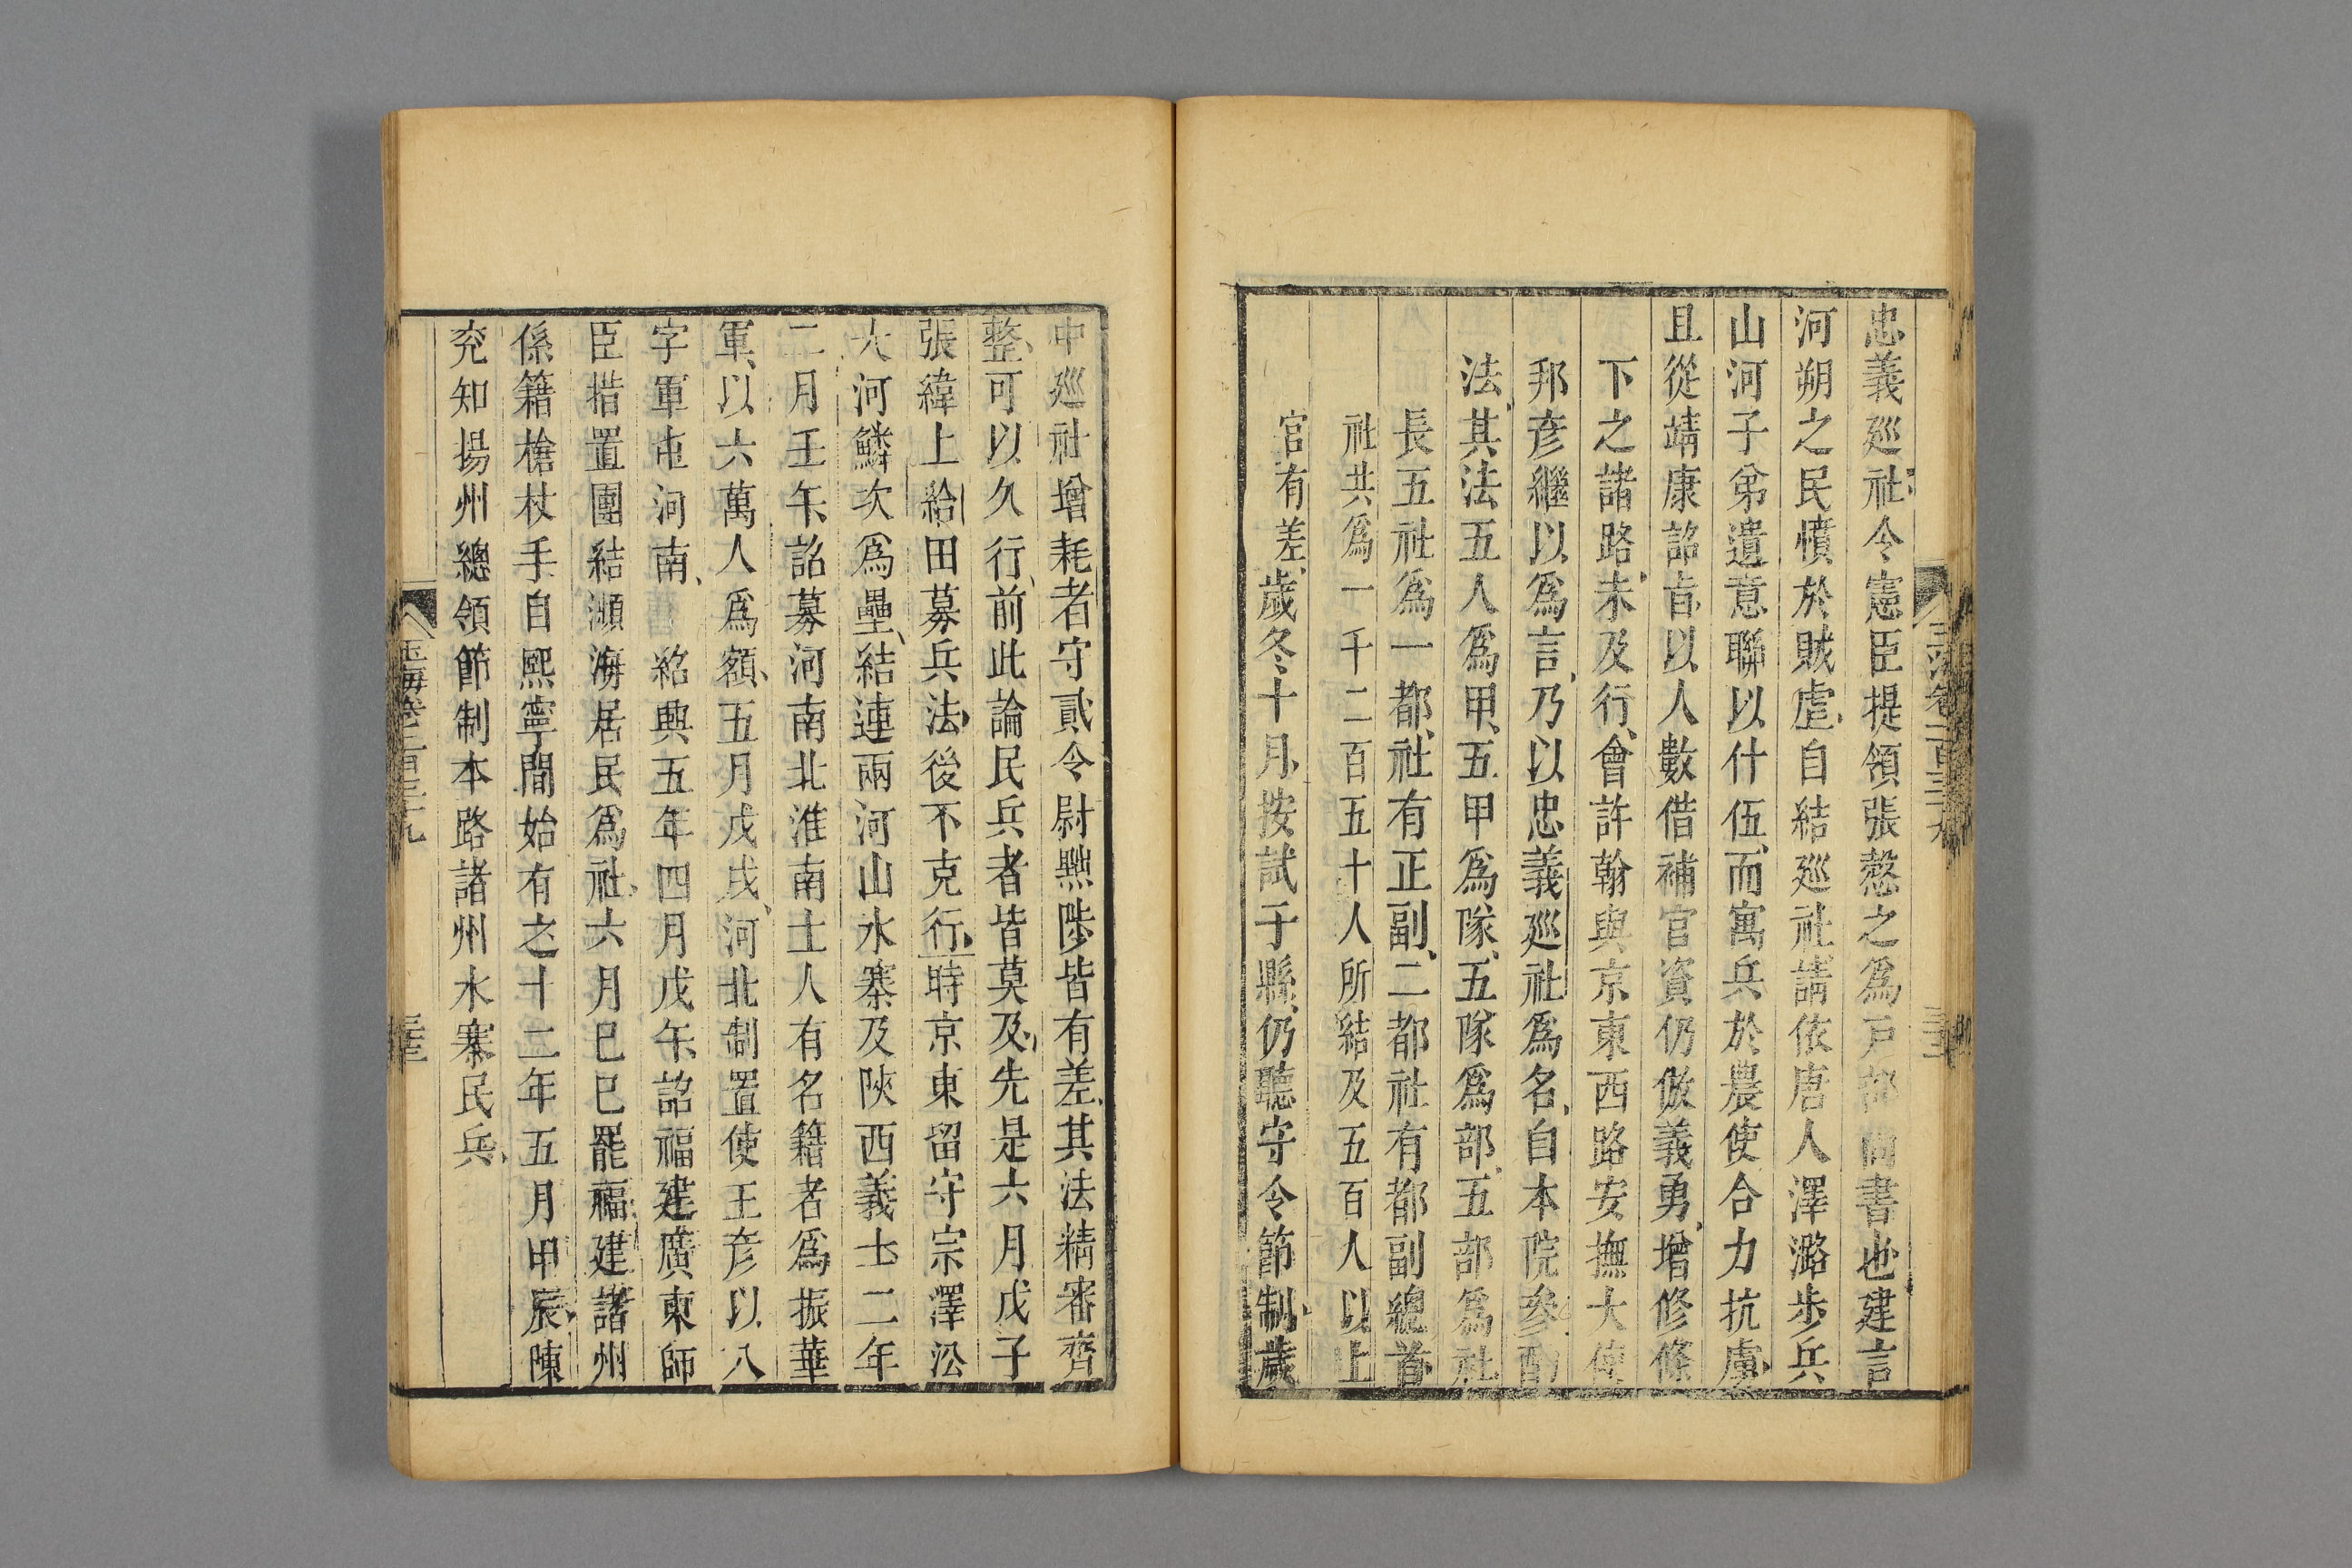 忠義巡社令憲臣提領張慤之爲戸部尚書也建言
河朔之民憤於賊虐自結巡社請依唐人澤潞步兵
山河子弟遺意聯以什伍而寓兵於農使合力抗虜
且從靖康詔旨以人數借補官資仍倣義勇增修條
下之諸路未及行會許翰與京東西路安撫大使
邦彦繼以爲言乃以忠義巡社爲名自本院參酌
法其法五人爲甲五甲爲隊五隊爲部五部爲社
長五社爲一都社有正副二都社有都副總首
社共爲一千二百五十人所結及五百人以上
官有差歲冬十月按試于縣仍聽守令節制歲
中巡社增耗者守貳令尉㸃陟皆有差其法精審齊
整可以久行前此論民兵者皆莫及先是六月戊子
張緯上給田募兵法後不克行時京東留守宗澤㳂
大河鱗次爲壘結連兩河山水寨及陜西義士二年
二月壬午詔募河南北淮南士人有名籍者爲振華
軍以六萬人爲額五月戊戌河北制置使王彦以八
字軍屯河南 紹興五年四月戊午詔福建廣東師
臣措置團結瀕海居民爲社六月己巳罷福建諸州
係籍槍杖手自熙寧間始有之十二年五月甲辰陳
兖知揚州總領節制本路諸州水寨民兵
玉海卷一百三十九